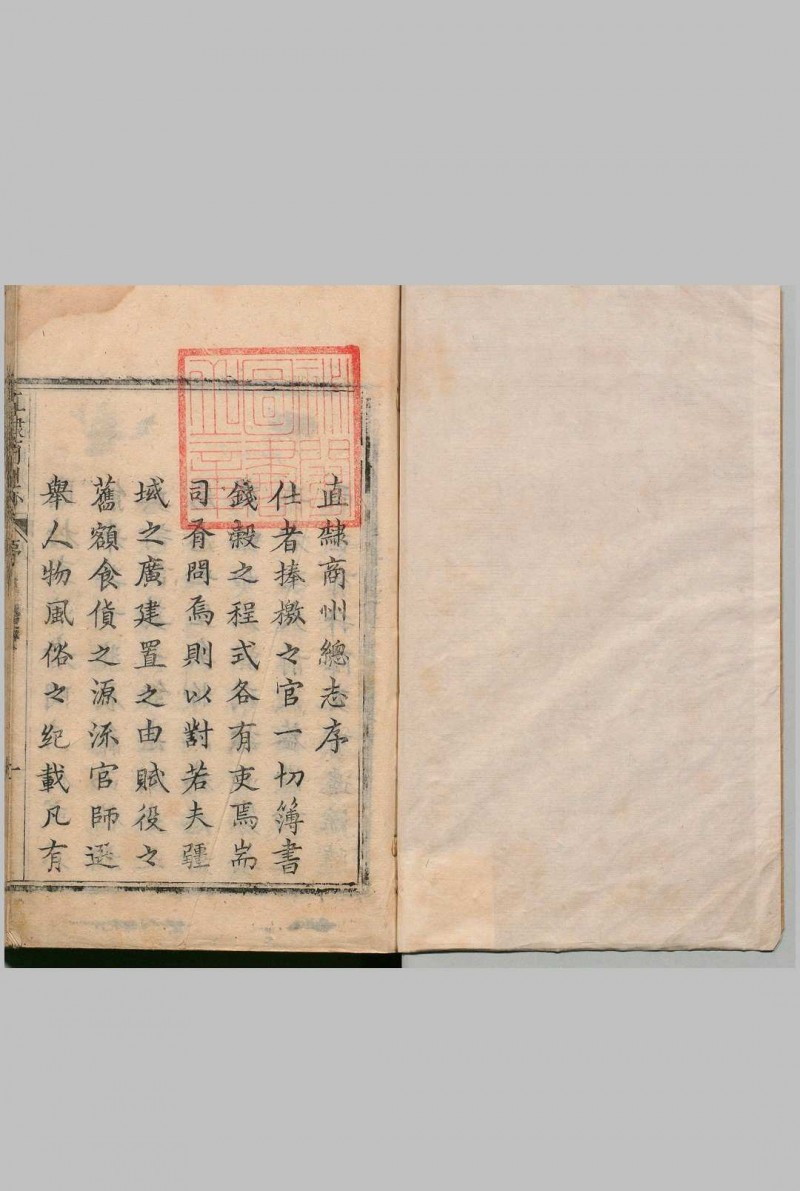 直隸商州總志序
仕者捧檄之官一切簿書
錢穀之程式各有吏焉耑
司有問焉則以對若夫疆
域之廣建置之由賦役之
舊額食貨之源流官師選
舉人物風俗之紀載凡有
直隸商州志
序
一